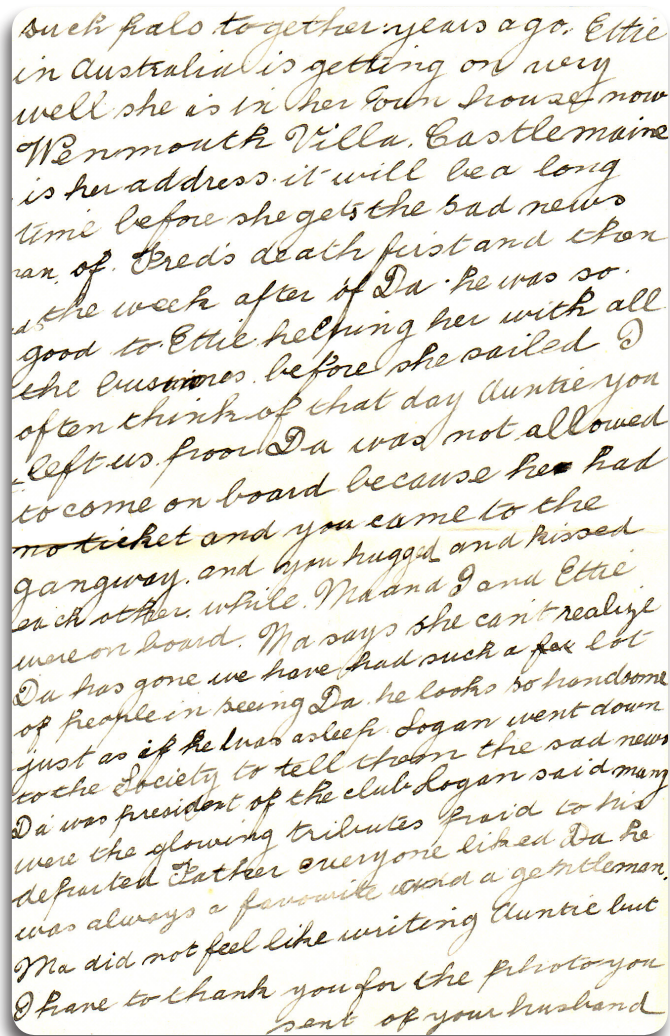 such pals together years ago. Ettie
in Australia is getting on very
well she is in her own house now
Wenmouth Villa. Castlemaine
is her address it will be a long
time before she gets the sad news
of. Fred's death first and then
the week after of Da. he was so.
good to Ettie helping her with all
the business before she sailed I
often think of that day Auntie you
left us poor Da was not allowed
to come on board because he had
no ticket and you came to the
gangway. and you hugged and kissed
each other. while. Ma and I and Ettie
were on board. Ma says she can't realize
Da has gone we have had such a lot
of people in seeing Da. he looks so handsome
just as if he was asleep. Logan went down
to the Society to tell them the sad news
Da was president of the club Logan said many
were the glowing tributes paid to his
departed Father everyone liked Da he
was always a favourite and a gentleman.
Ma did not feel like writing Auntie but
I have to thank you for the photo you
sent of your husband